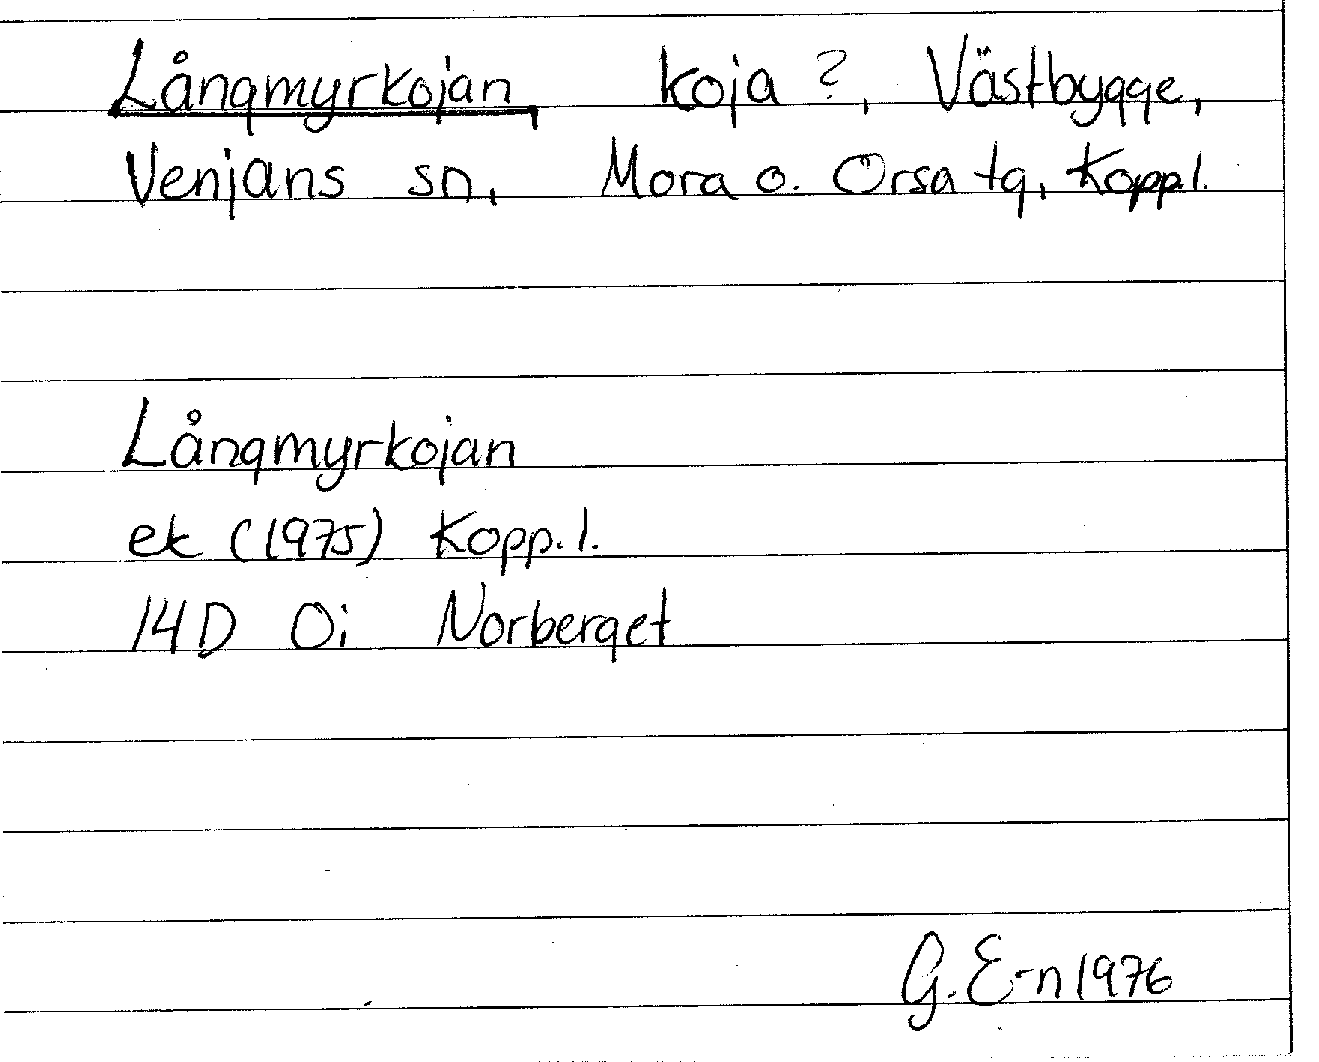 Långmyrkojan, koja ?, Västbygge,
Venjans sn, Mora o. Orsa tg, Koppl.
Långmyrkojan
ek (1975) Kopp.l.
14D 0i Norberget
G. E-n 1976